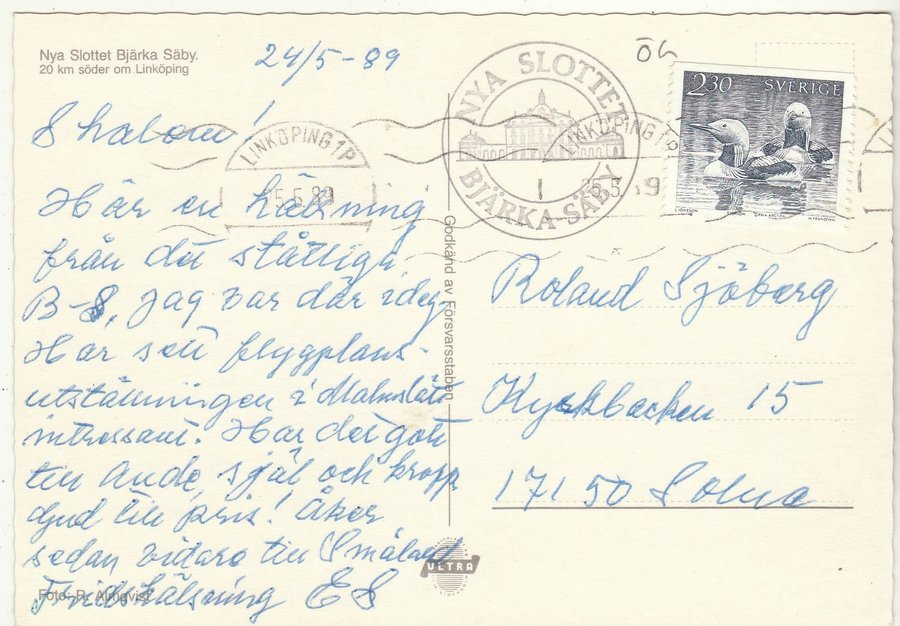 Nya Slottet Bjärka Säby.
20 km söder om Linköping
24/5-89
Shalom!
Här en hälsning
från det ståtliga
B-S, Jag var där idag
Har sett flygplans-
utställningen i Malmslätt
intressant. Har det gott
till ande, själ och kropp
Gud till pris! Åker
sedan vidare till Småland
Fridshälsning ES
Foto: R. Almqvist
LINKÖPING 1P
5.5.89
NYA SLOTTET
BJÄRKA SÄBY
LINKÖPING 1P
Godkänd av Försvarsstaben
ULTRA
2.30 SVERIGE
Roland Sjöberg
Kyrkbacken 15
171 50 Solna